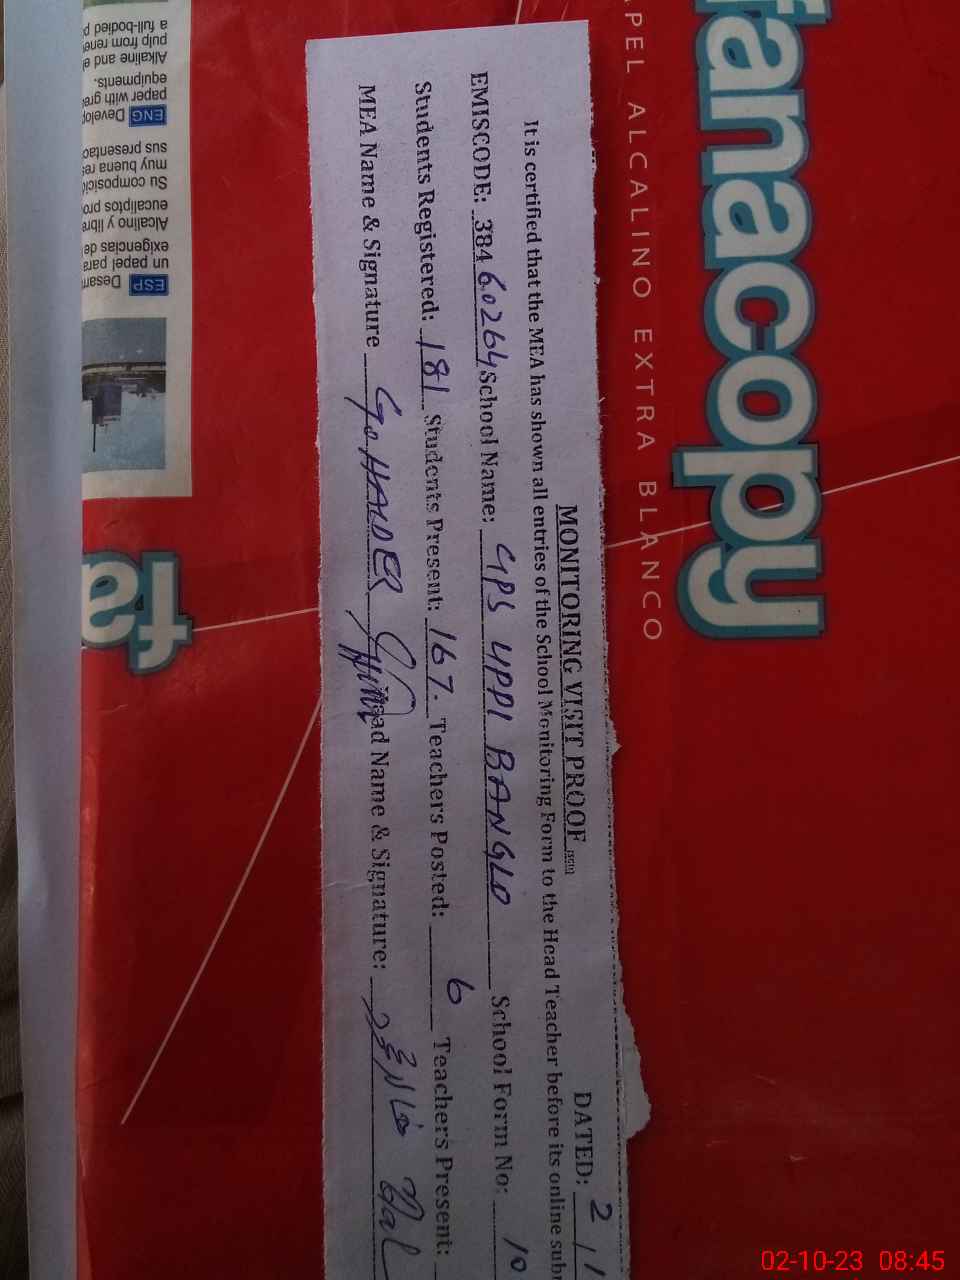 MONITORING VISIT PROOF
DATED: 2
It is certified that the MEA has shown all entries of the School Monitoring Form to the Head Teacher before its online
EMISCODE: 38460264 School Name: GPS UPPI BANGLO School Form No: 10
Students Registered: 181 Students Present: 167. Teachers Posted: 6 Teachers Present:
MEA Name & Signature G. HAIDER Head Name & Signature:
fanacopy
PEL ALCALINO EXTRA BLANCO
fa
ESP Desar
un papel para
exigencias de
Alcalino y libre
eucaliptos pro
Su composició
muy buena res
sus presentac
ENG Develop
paper with gre
equipments.
Alkaline and e
pulp from rene
a full-bodied p
02-10-23 08:45